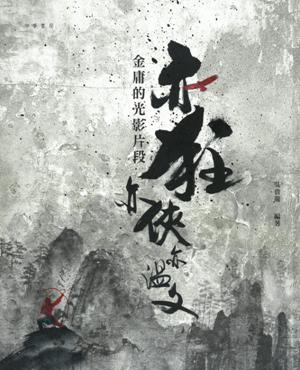 中華書局
亦狂亦俠亦溫文
金庸的光影片段
吳貴龍 編著